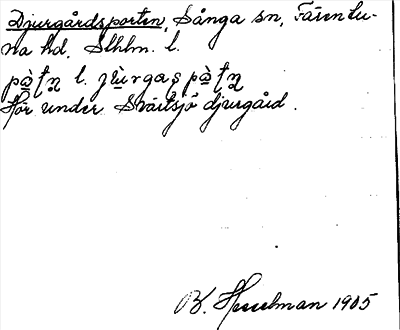 Djurgårdsporten, Sånga sn, Färentu-
na hd. Sthlm. l.
l.
Hör under Svartsjö djurgård.
B. Hesselman 1905